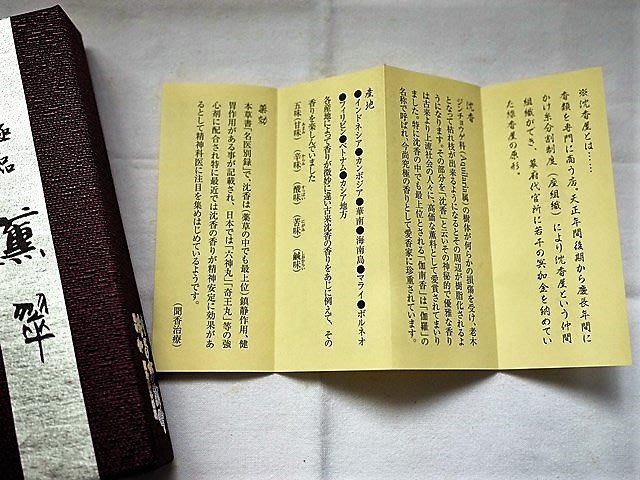 ※沈香屋とは……
香類を専門に商う店。天正年間後期から慶長年間に
かけ糸分割制度（座組織）により沈香屋という仲間
組織ができ、幕府代官所に若干の冥加金を納めてい
た線香屋の原形。
沈香
ジンチョウゲ科(Aquilaria属)の樹体が何らかの損傷を受け、老木
となって枯れ枝が出来るようになるとその周辺が樹脂化されるよ
うになります。その部分を「沈香」と云いその神秘的で優雅な香り
は古来より上流社会の人々に、高価な薫料として愛賞されてまいり
ました。特に沈香の中でも最上位とされる「伽南香」は「伽羅」の
名称で呼ばれ、今尚究極の香りとして愛香家に珍重されています。
産地
●インドネシア●カンボジア●華南●海南島●マライ●ボルネオ
●フィリピン●ベトナム●カシア地方
各産地によって香りが微妙に違い古来沈香の香りをあじに例えて、その
香りを楽しんでいました
五味(甘味)(辛味)(酸味)(苦味)(鹹味)
薬効
本草書「名医別録」で、沈香は「薬草の中でも最上位」鎮静作用、健
胃作用がある事が記載され、日本では「六神丸」「奇王丸」等の強
心剤に配合され特に最近では沈香の香りが精神安定に効果があ
るとして精神科医に注目を集めはじめているようです。
(聞香治療)
極品
薫翠